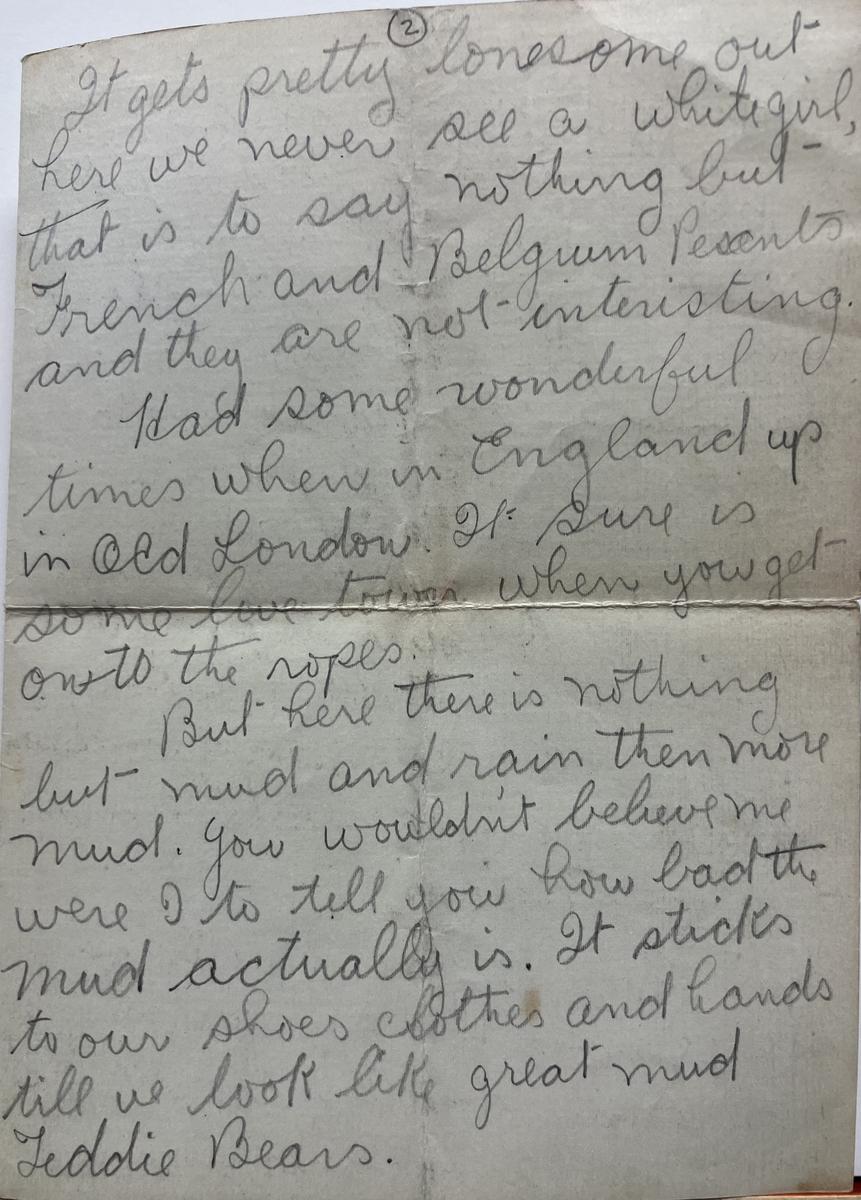 2
It gets pretty lonesome out
here we never see a whitegirl,
that is to say nothing but
French and Belgium Pesents
and they are not interisting.
Had some wonderful
times when in England up
in Old London. It sure is
some live town when you get
onto the ropes.
But here there is nothing
but mud and rain then more
mud. You wouldn't believe me
were I to tell you how bad the
mud actually is. It sticks
to our shoes clothes and hands
till we look like great mud
Teddie Bears.